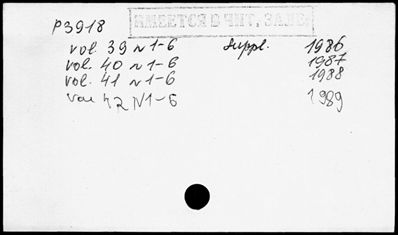 ИМЕЕТСЯ В ЧИТ. ЗАЛЕ
P3918
vol. 39 N 1-6 Suppl. 1986
vol. 40 N 1-6 1987
vol. 41 N 1-6 1988
vol 42 N 1-6 1989